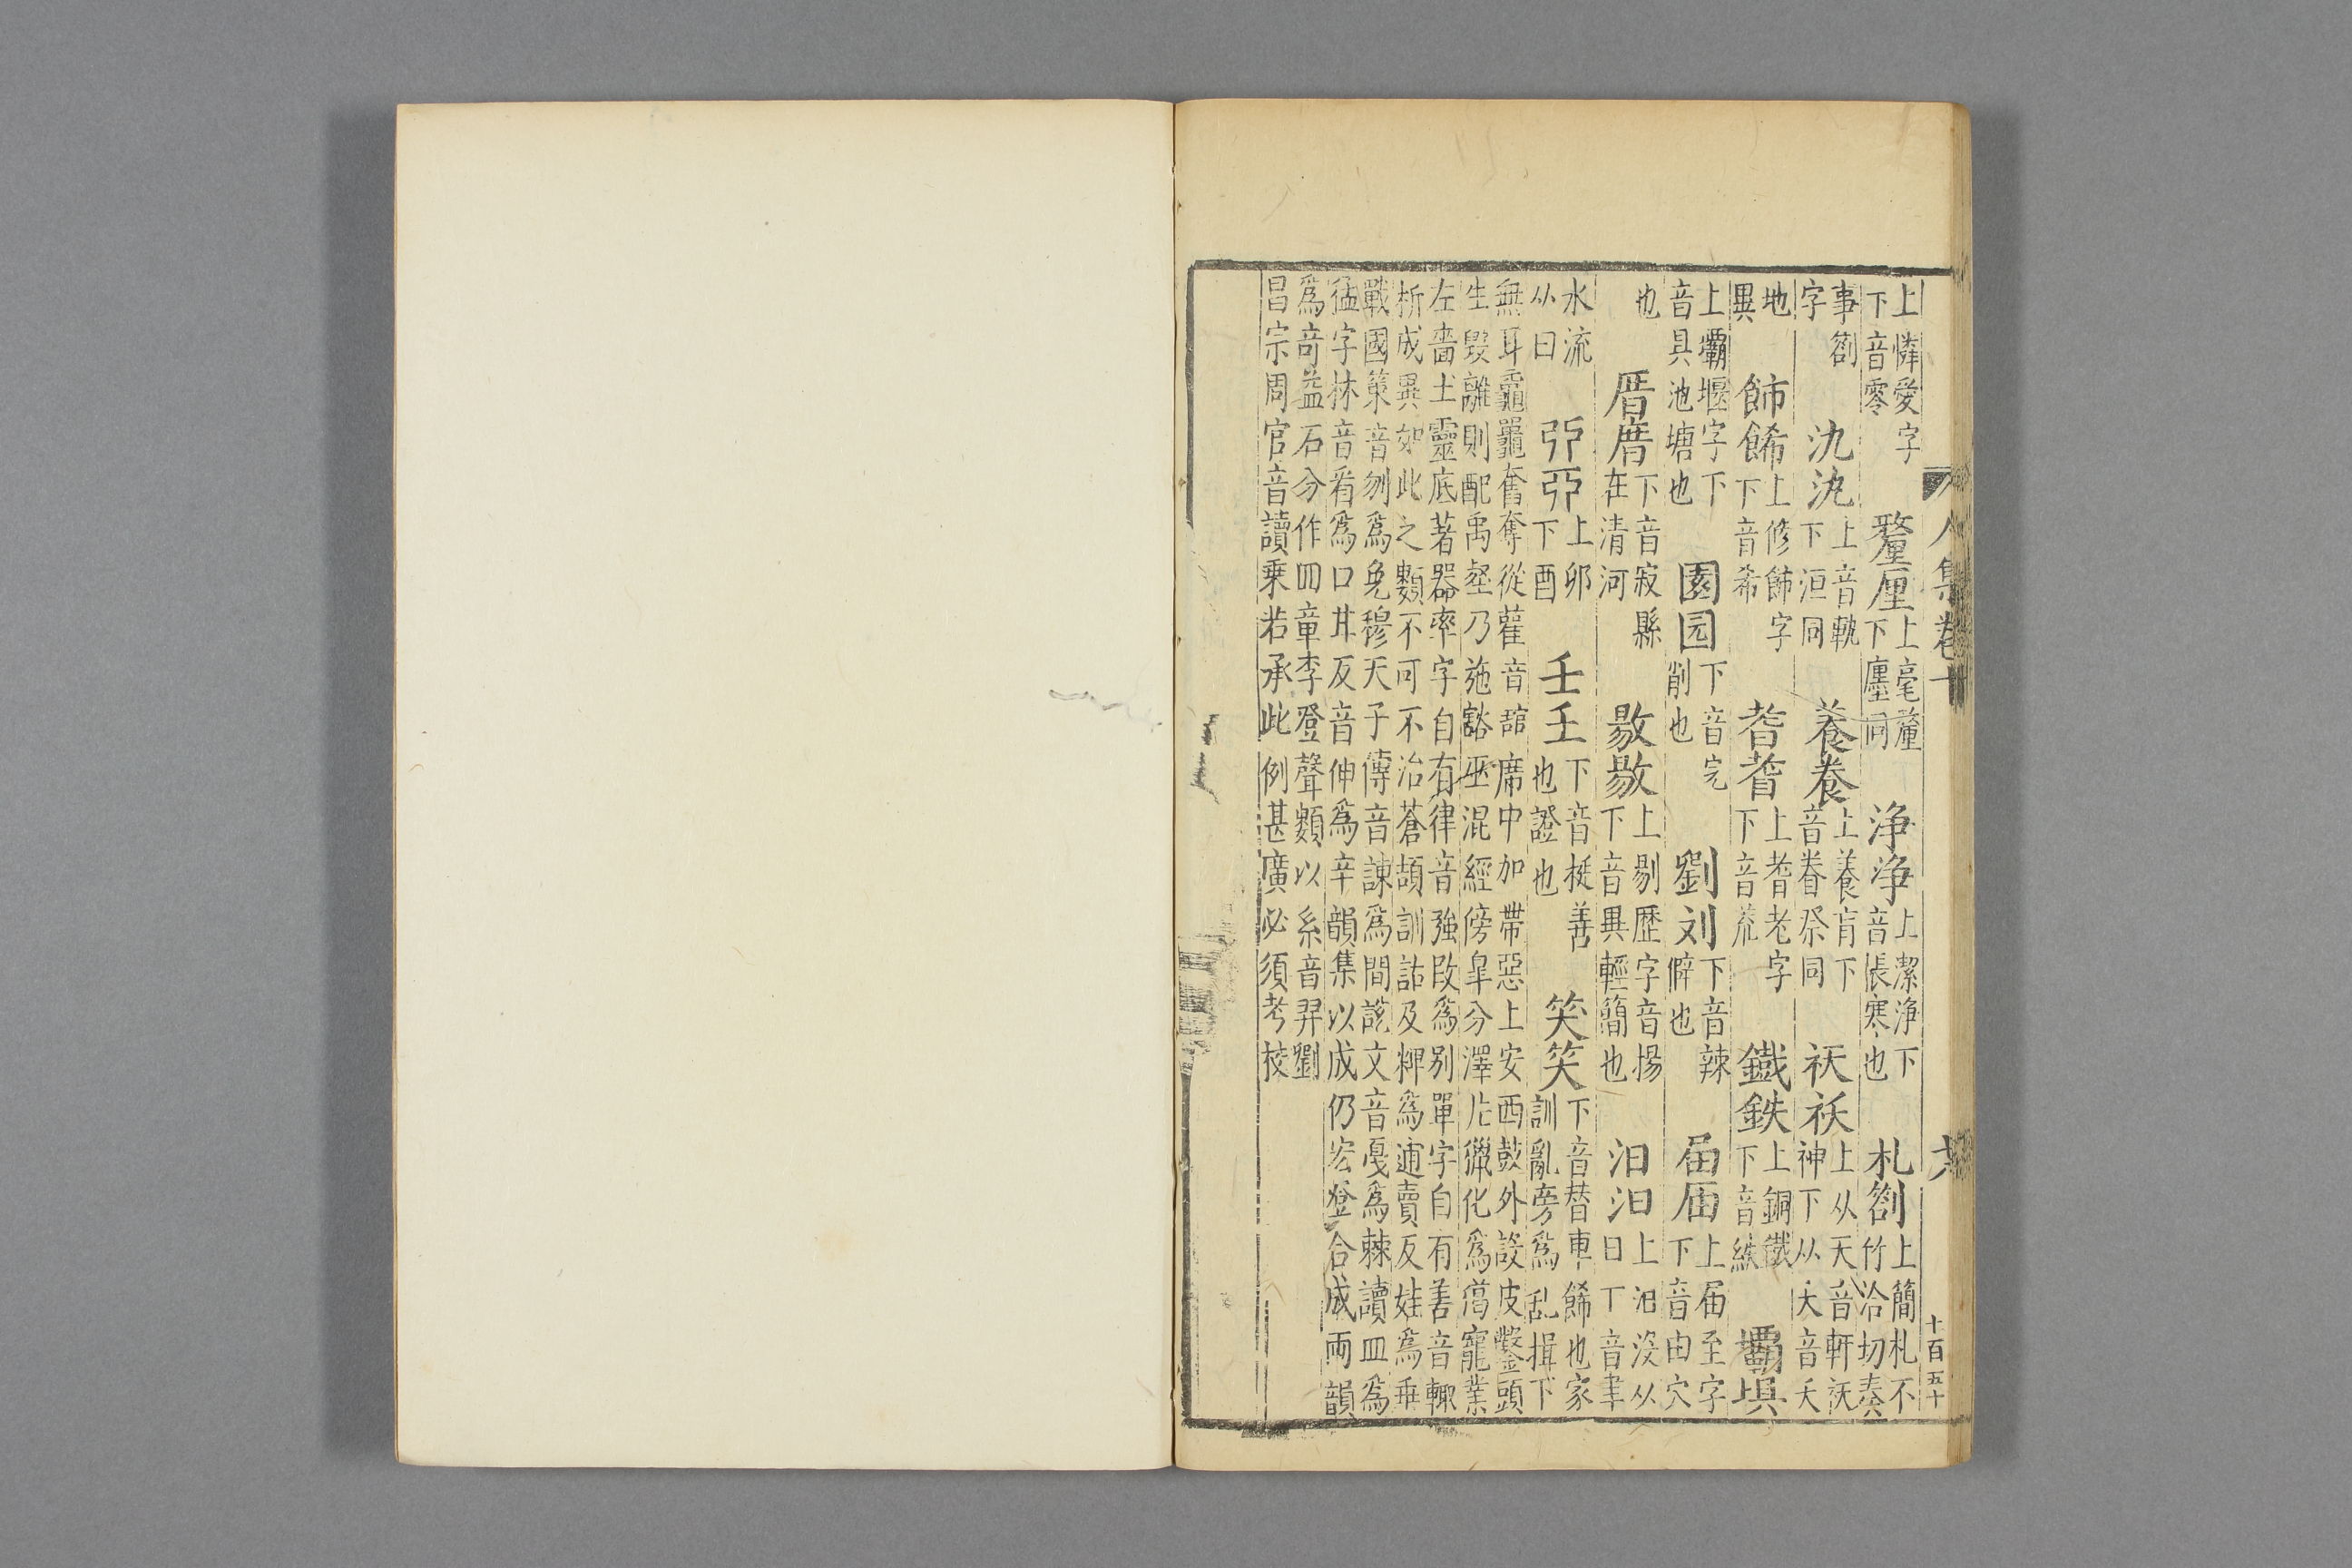 集卷十 六
上憐愛字下音零 釐厘 上毫釐下廛同 淨浄 上潔淨下音悵寒也 札劄 上簡札不竹洽切奏
事劄字 氿 上音軌下洹同 養 上養育下音眷祭同 祆袄 上从天音軒祆神下从夭音夭
地異 飾餙 上修飾字下音希 上耆老字下音耄 鐵鉄 上銅鐵下音紩 壩垻
上壩堰字下音具池塘也 園园 下音完削也 劉刘 下音辣僻也 届 上届至字下音由穴
也 厝 下音寂縣在清河 敡 上剔歷字音揚下音異輕簡也 汨汩 上汨没从日丅音聿
水流从曰 上卯下酉 壬𡈼 下音挺善也證也 笑 下音替車餙也家訓亂旁爲乱揖下
無耳黿鼉奮奪從雚音舘席中加帶惡上安西鼓外設皮鑿頭
生毀離則配禹壑乃施豁巫混經傍皋分澤片獵化爲寵業
左嗇土靈底著器率字自有律音強改爲别單字自有善音輒
析成異如此之類不可不治蒼頡訓詁及粺爲逋賣反娃爲垂
戰國策音刎爲免穆天子傳音諫爲間説文音戞爲棘讀皿爲
猛字林音看爲口甘反音伸爲辛韻集以成仍宏登合成兩韻
爲奇益石分作四章李登聲類以系音羿劉
昌宗周官音讀乗若承此例甚廣必須考校